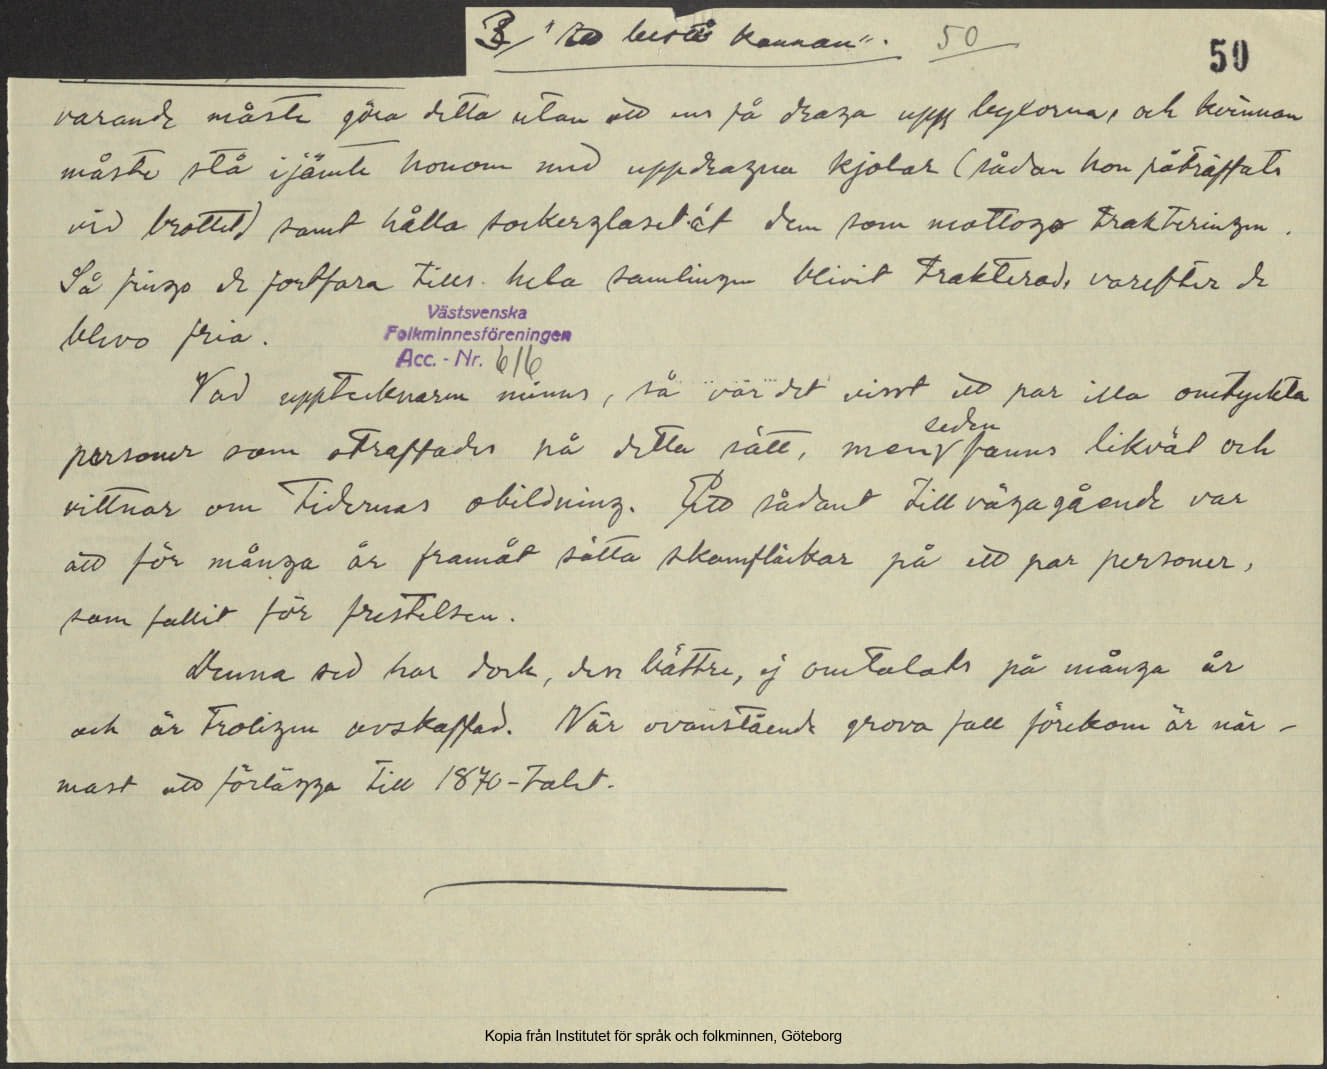 3/ "Att bestå kannan". 50
50
varande måste göra detta utan att ens få draga upp byxorna, och kvinnan
måste stå i jämte honom med uppdragna kjolar (sådan hon påträffats
vid brottet) samt hålla sockerglaset åt dem som mottogo trakteringen.
Så fingo de fortfara tills hela samlingen blivit trakterad, varefter de
blevo fria.
Västsvenska
Folkminnesföreningen
Acc. - Nr. 616
Vad upptecknaren minns, så var det visst ett par illa omtyckta
seden
personer som straffades på detta sätt, men fanns likväl och
vittnar om tidernas obildning. Ett sådant tillvägagående var
att för många år framåt sätta skamfläckar på ett par personer,
som fallit för frestelsen.
Denna sed har dock, dess bättre, ej omtalats på många år
och är troligen avskaffad. När ovanstående grova fall förekom är när-
mast att förlägga till 1870-talet.
Kopia från Institutet för språk och folkminnen, Göteborg